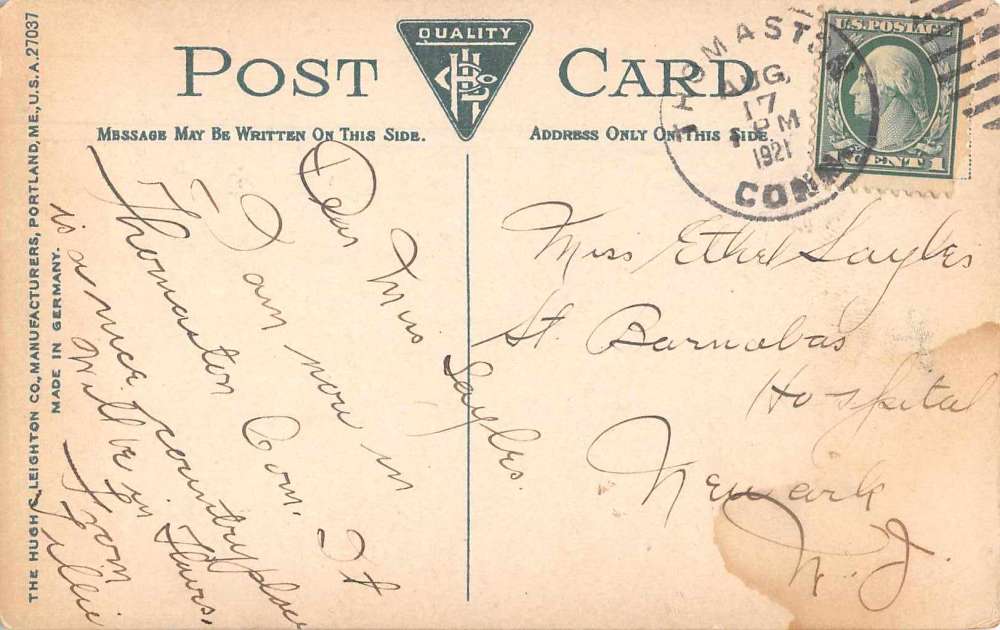 POST CARD
QUALITY
MESSAGE MAY BE WRITTEN ON THIS SIDE.
ADDRESS ONLY ON THIS SIDE
THOMASTON
AUG.
17
PM
1921
CONN.
U.S. POSTAGE
CENT 1
THE HUGH C. LEIGHTON CO., MANUFACTURERS, PORTLAND, ME., U.S.A. 27037
MADE IN GERMANY.
Dear Miss Sayles.
I am now in
Thomaston Conn. It
is a nice country place
Will be in
From
Miss Ethel Sayles
St. Barnabas
Hospital
Newark
N. J.